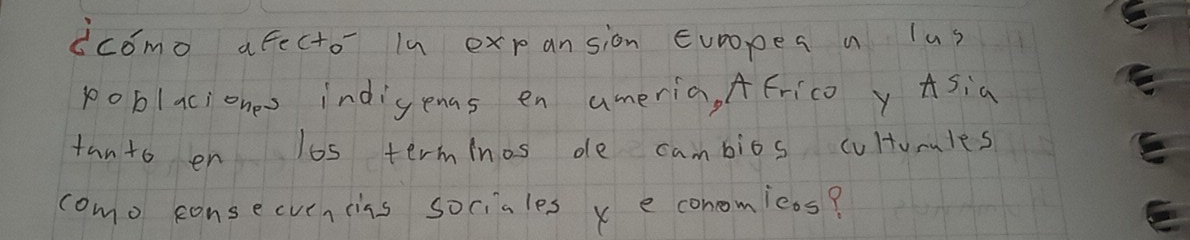 ¿cómo afectó la expansion Europea a las
poblaciones indigenas en ameria, Africo y Asia
tanto en los terminos de cambios culturales
como consecuencias sociales y economicos?